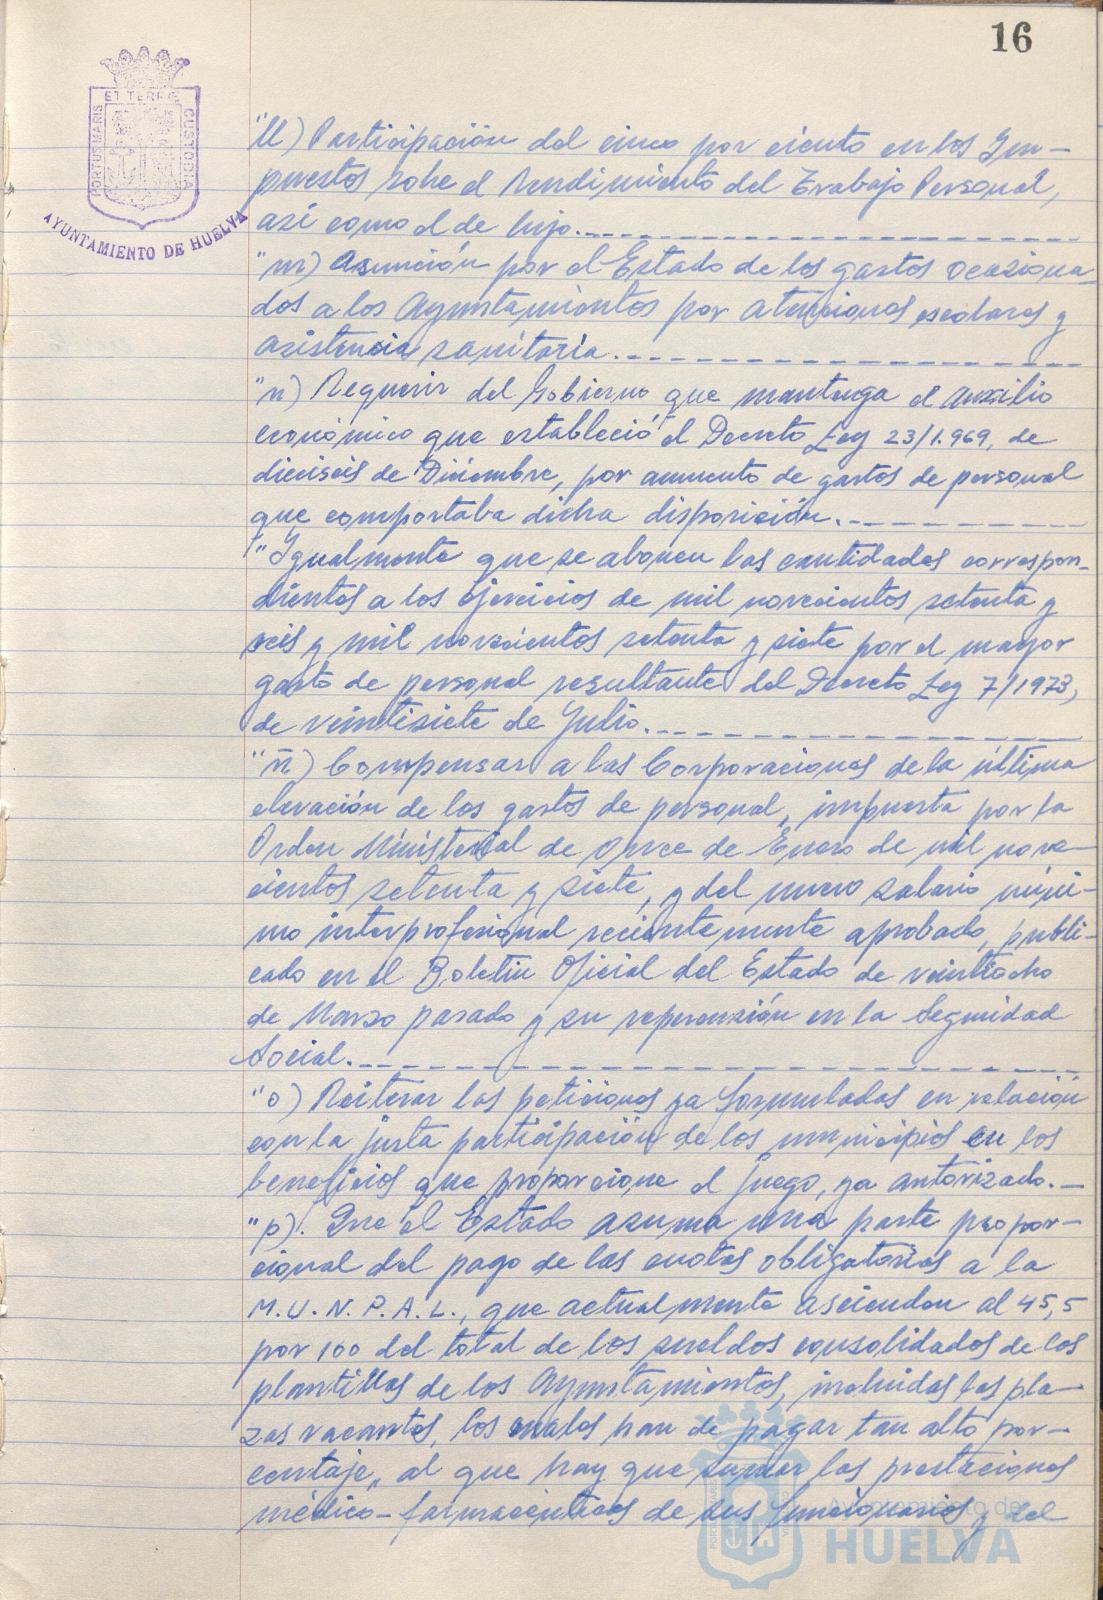 16
PORTUS MARIS
ET TERRE
CUSTODIA
AYUNTAMIENTO DE HUELVA
"ll) Participación del cinco por ciento en los Im-
puestos sobre el Rendimiento del Trabajo Personal,
así como el de lujo.
"m) Asunción por el Estado de los gastos ocasiona-
dos a los Ayuntamientos por atenciones escolares y
asistencia sanitaria.
"n) Requerir del Gobierno que mantenga el auxilio
económico que estableció el Decreto Ley 23/1.969, de
dieciseis de Diciembre, por aumento de gastos de personal
que comportaba dicha disposición.
"Igualmente que se abonen las cantidades correspon-
dientes a los ejercicios de mil novecientos setenta y
seis y mil novecientos setenta y siete por el mayor
gasto de personal resultante del Decreto Ley 7/1973,
de veintisiete de Julio.
"ñ) Compensar a las Corporaciones de la última
elevación de los gastos de personal, impuesta por la
Orden Ministerial de once de Enero de mil nove-
cientos setenta y siete, y del nuevo salario míni-
mo interprofesional recientemente aprobado, publi-
cado en el Boletín Oficial del Estado de veintiocho
de Marzo pasado y su repercusión en la Seguridad
Social.
"o) Reiterar las peticiones ya formuladas en relación
con la justa participación de los municipios en los
beneficios que proporcione el juego, ya autorizado.-
"p). Que el Estado asuma una parte propor-
cional del pago de las cuotas obligatorias a la
M.U.N.P.A.L., que actualmente ascienden al 45,5
por 100 del total de los sueldos consolidados de las
plantillas de los Ayuntamientos, incluidas las pla-
zas vacantes, los cuales han de pagar tan alto por-
centaje, al que hay que sumar las prestaciones
médico-farmacéuticas de sus funcionarios y del
Ayuntamiento de
HUELVA